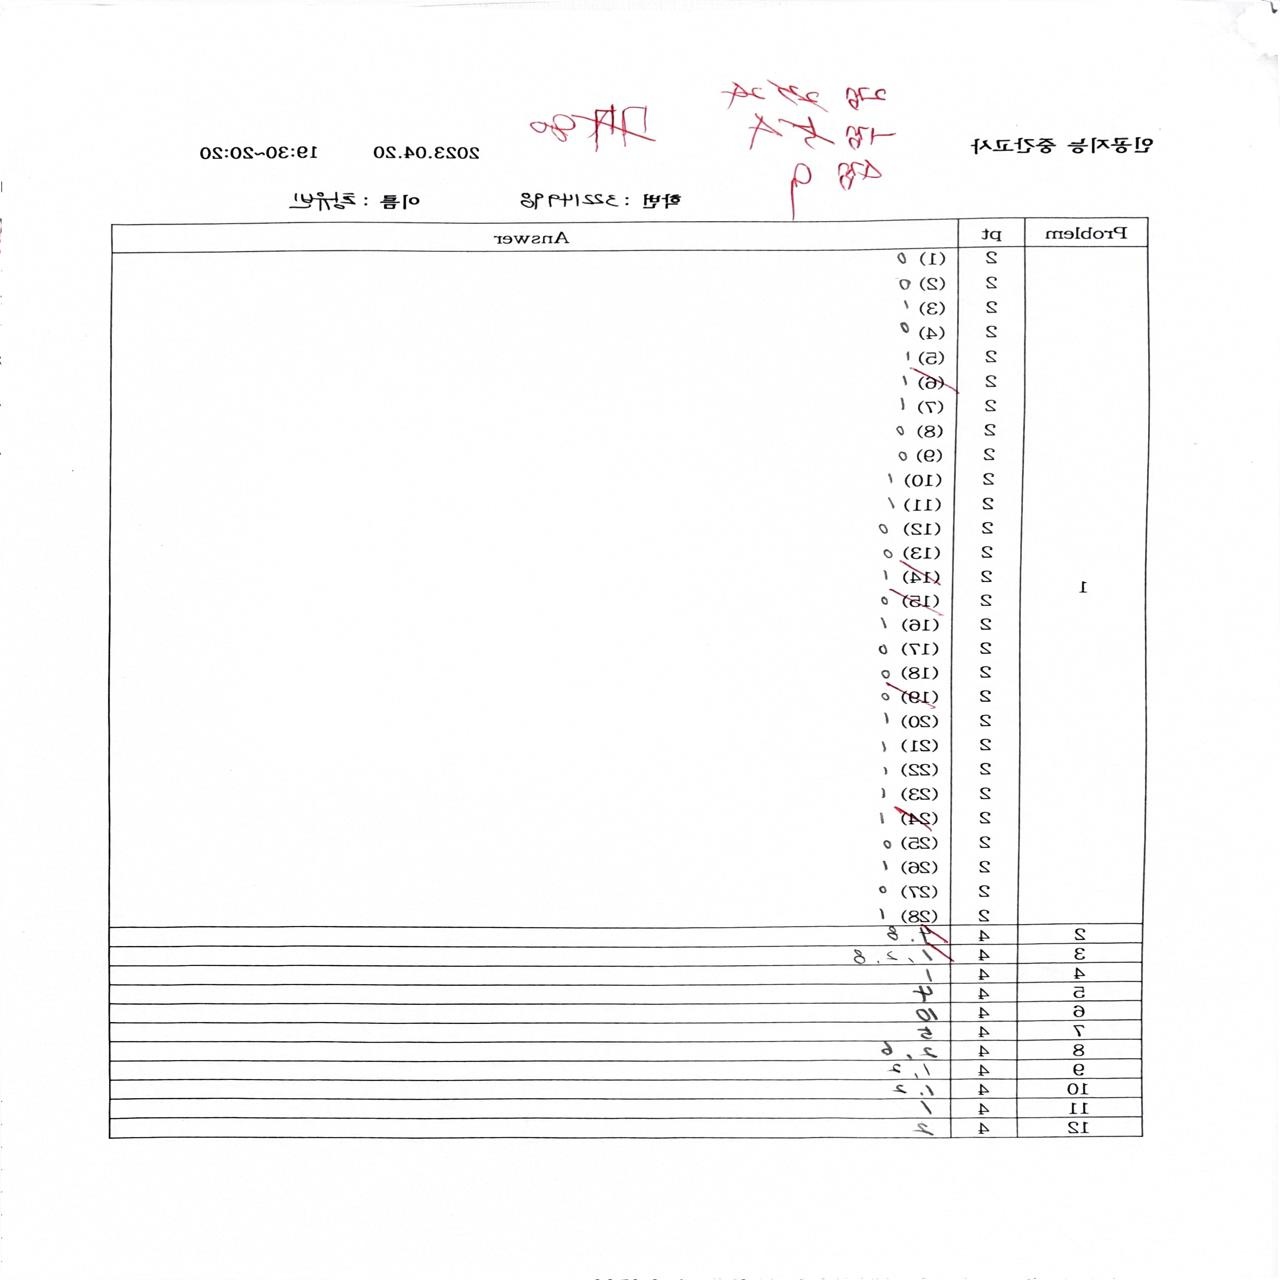 2점
1점
4점 9
인공지능 중간고사 2023.04.20 19:30~20:20
학번 : 32214998 이름 : 최유빈
Problem pt Answer
1
2 (1) 0
2 (2) 0
2 (3) 1
2 (4) 0
2 (5) 1
2 (6) 1
2 (7) 1
2 (8) 0
2 (9) 0
2 (10) 1
2 (11) 1
2 (12) 0
2 (13) 0
2 (14) 1
2 (15) 0
2 (16) 1
2 (17) 0
2 (18) 0
2 (19) 0
2 (20) 1
2 (21) 1
2 (22) 1
2 (23) 1
2 (24) 1
2 (25) 0
2 (26) 1
2 (27) 0
2 (28) 1
2 4 7. 8
3 4 1, 2. 8
4 4 1
5 4 7
6 4 5
7 4 5
8 4 2, 6
9 4 1, 2
10 4 1. 2
11 4 1
12 4 2